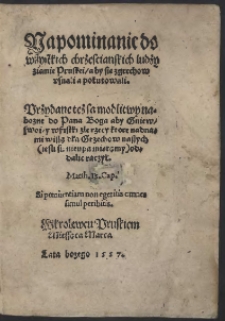 Napominanie do
wszystkich chrześcianskich ludźy
ziemie Pruskiei/ aby sie z grzechow
vznali a pokutowali.
Przydane też są modlitwy na-
bożne do Pana Boga aby Gniew
swoi y wszystki złe rzecy ktore nad na-
mi wiszą dla Grzechow naszych
odda-
lic raczył.
Matth. 13. Cap.
Si poenitentiam non egeritis omnes
simul peribitis.
W krolewcu Pruskiem
Miessoca Marca
Lata bożego 1557.